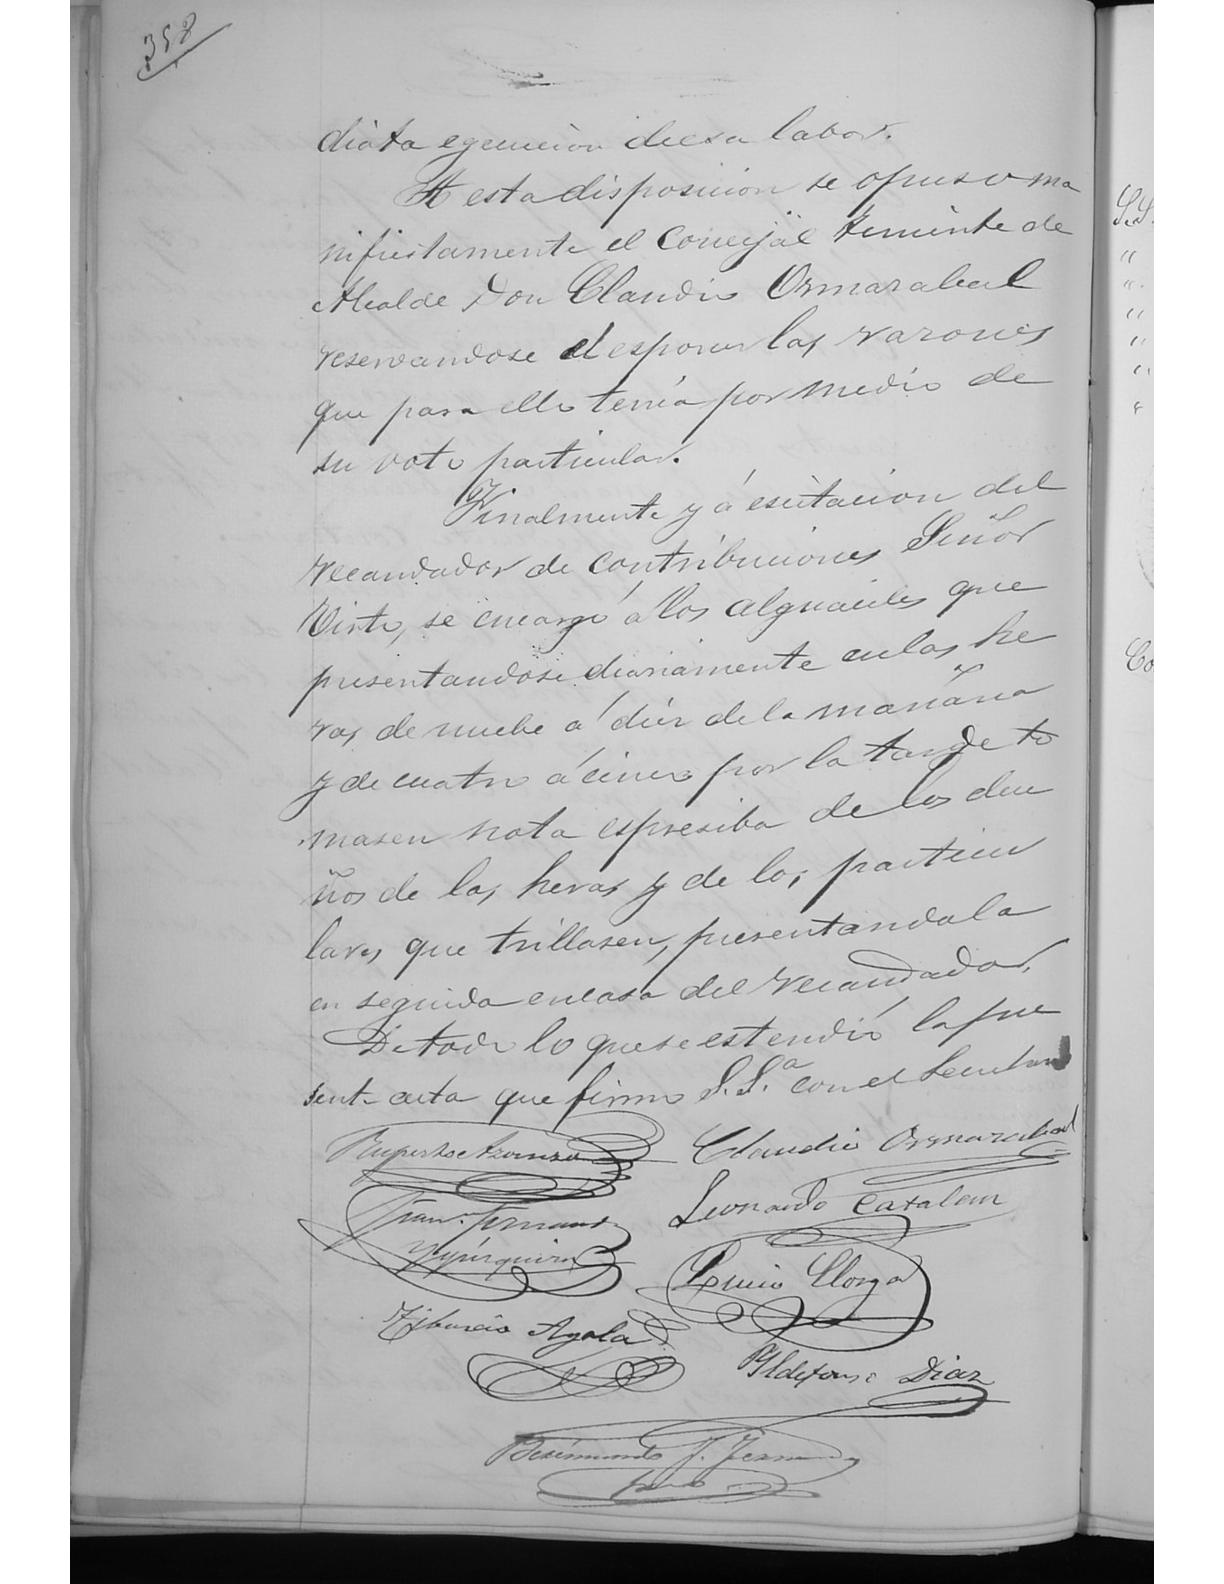 358
diata egecucion de esa labor.
A esta disposicion se opuso ma
nifiestamente el Concejal teniente de
Alcalde Don Claudio Ormazabal
reservandose el esponer las razones
que para ello tenía por medio de
su voto particular.
Finalmente y á escitacion del
recaudador de contribuciones Señor
Virto, se encargó á los alguaciles que
presentandose diariamente en las he
ras de nuebe á diez de la mañana
y de cuatro á cinco por la tarde to
masen nota espresiba de los due
ños de las heras y de los particu
lares que trillasen, presentandola
en seguida en casa del recaudador.
De todo lo que se estendió la pre
sente acta que firma S.S.ª con el Secretario
Ruperto
Claudio Ormazabal
Leonardo Catalan
Lucio Llorza
Tiburcio Ayala
Yldefonso Diaz
S.S.
"
"
"
"
"
"
Co